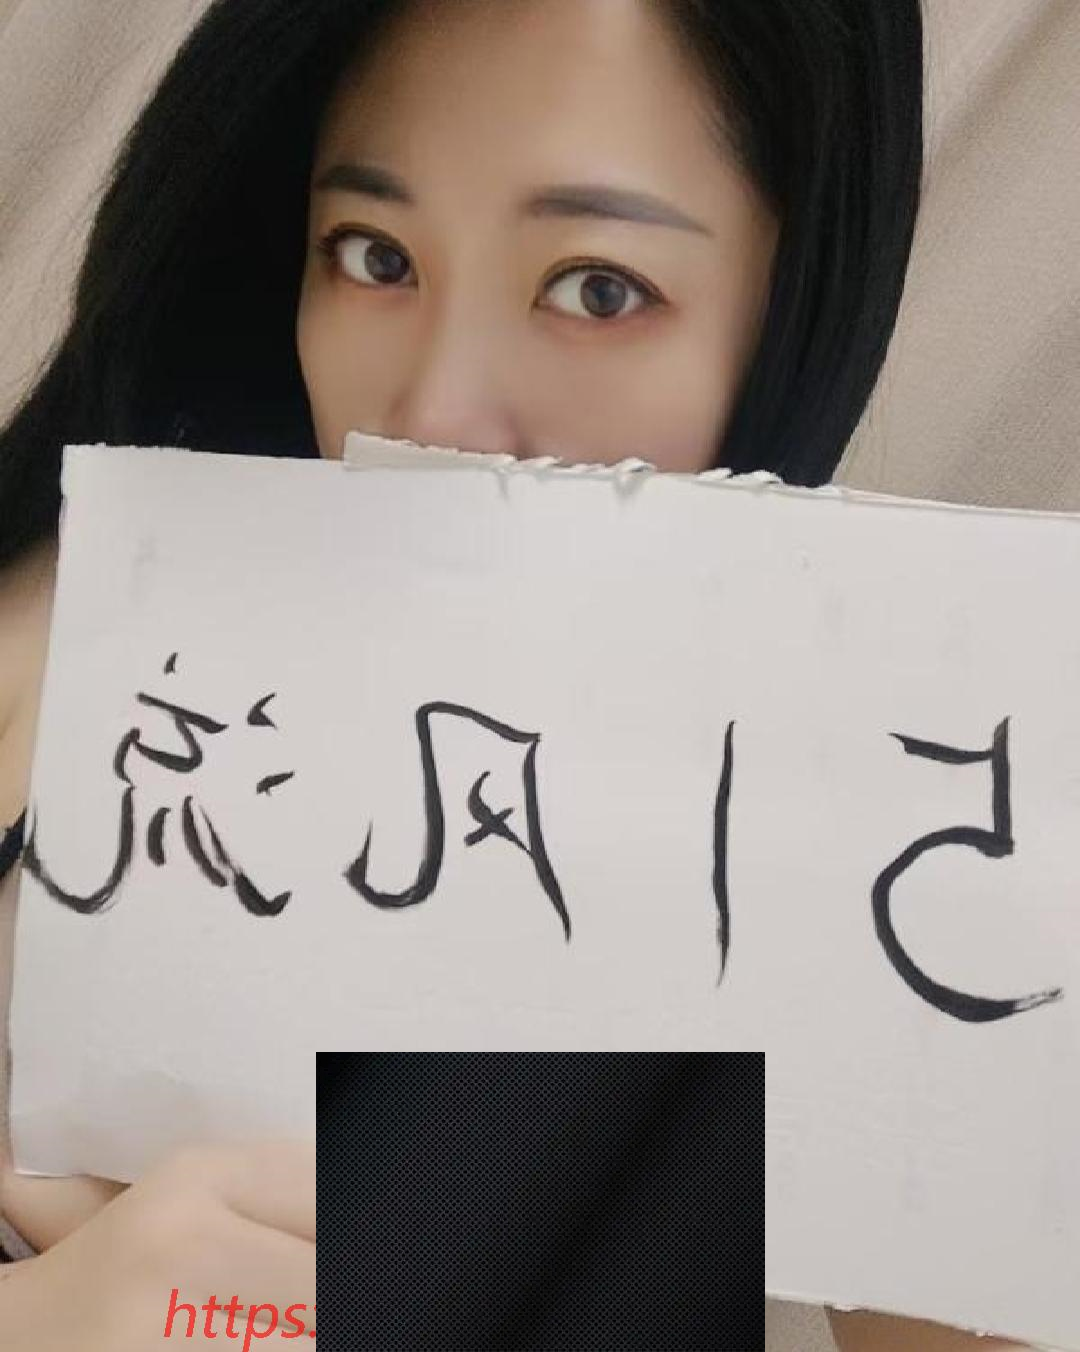 51风流
https: